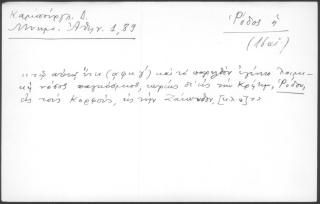 Καμπούρογλ. Δ.
Μνημ. Ἀθην. 1, 89
Ῥόδος ἡ
(Ἰδαί)
"τῷ αὐτῷ ἔτει (αφκγ') κατὰ τὸ παρελθὸν ἐγένετο λοιμι-
κὴ νόσος παγκόσμιος, κυρίως δὲ εἰς τὴν Κρήτην, Ῥόδον,
εἰς τοὺς Κορφούς, εἰς τὴν Ζάκυνθον, [κλπ]"